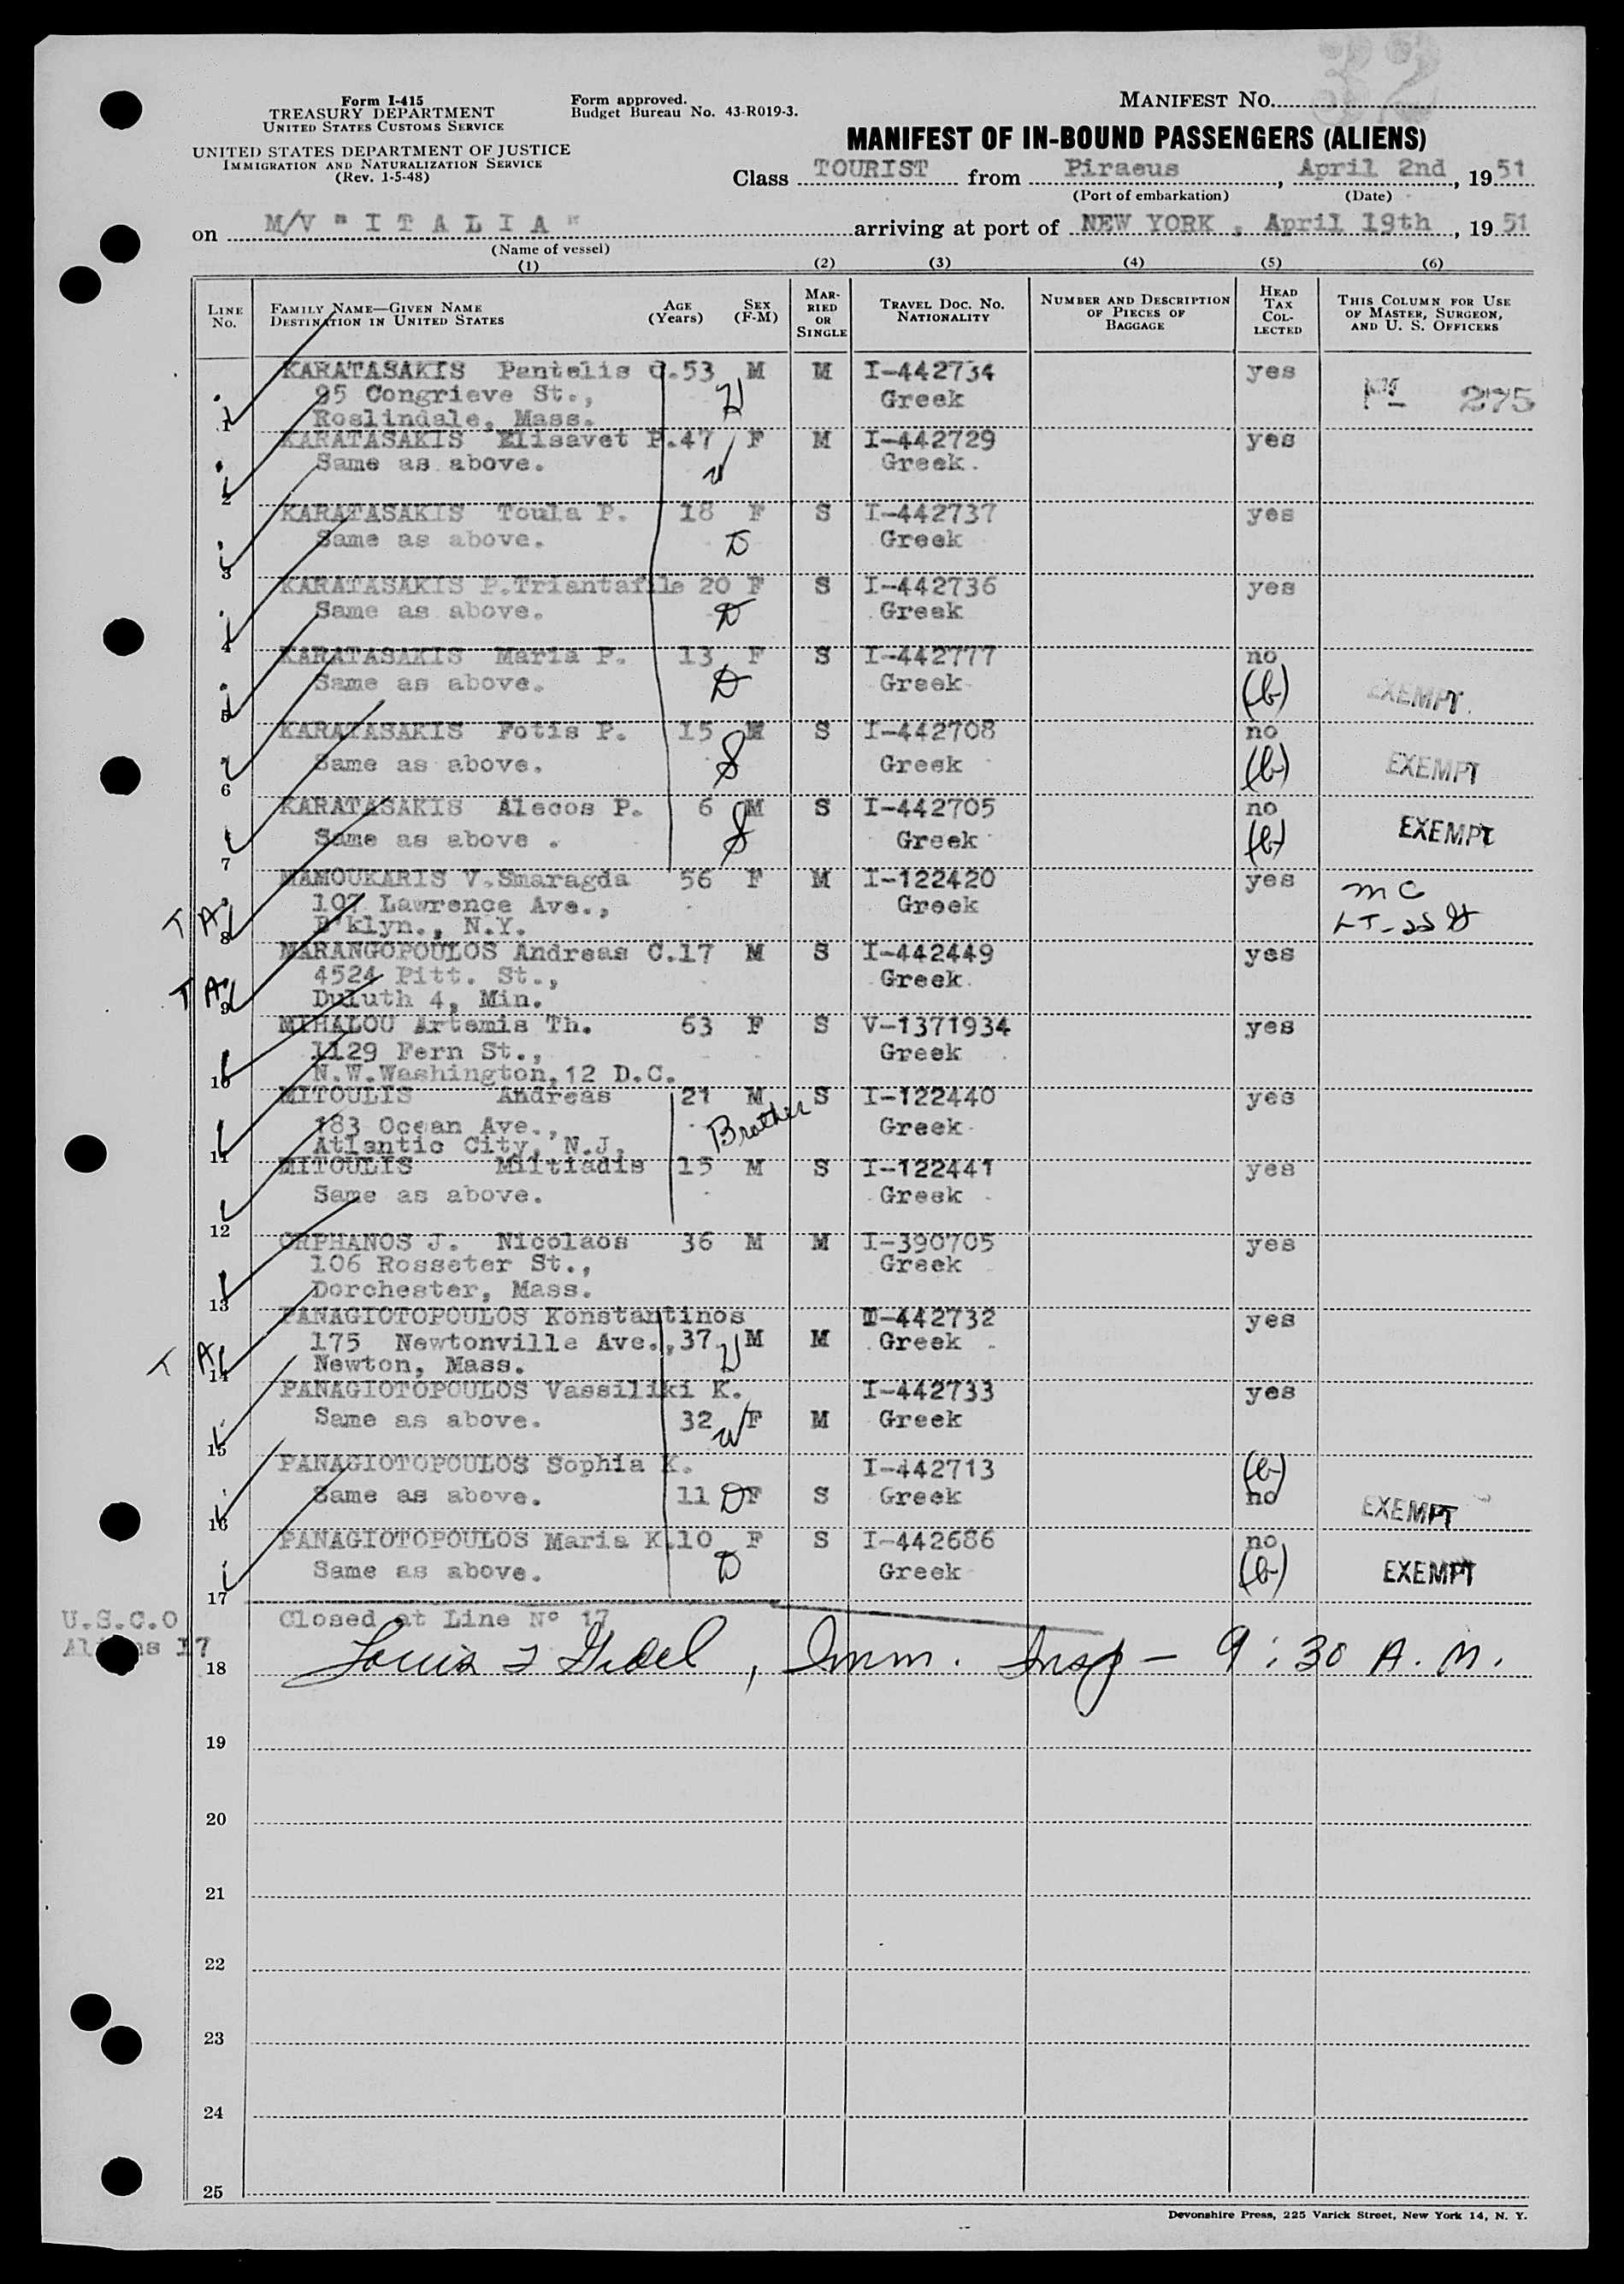 32
Form I-415
TREASURY DEPARTMENT
UNITED STATES CUSTOMS SERVICE
UNITED STATES DEPARTMENT OF JUSTICE
IMMIGRATION AND NATURALIZATION SERVICE
(Rev. 1-5-48)
Form approved.
Budget Bureau No. 43-R019-3.
MANIFEST NO.
MANIFEST OF IN-BOUND PASSENGERS (ALIENS)
Class TOURIST from Piraeus, April 2nd, 1951
(Port of embarkation) (Date)
on M/V "I T A L I A" arriving at port of NEW YORK, April 19th, 1951
(Name of vessel)
(1) (2) (3) (4) (5) (6)
LINE No. FAMILY NAME—GIVEN NAME DESTINATION IN UNITED STATES AGE (Years) SEX (F-M) MARRIED OR SINGLE TRAVEL DOC. NO. NATIONALITY NUMBER AND DESCRIPTION OF PIECES OF BAGGAGE HEAD TAX COLLECTED THIS COLUMN FOR USE OF MASTER, SURGEON, AND U. S. OFFICERS
KARATASAKIS Pantelis C. 53 M M I-442734 yes
95 Congrieve St., H Greek 275
1 Roslindale, Mass.
KARATASAKIS Elisavet P. 47 F M I-442729 yes
Same as above. W Greek.
2
KARATASAKIS Toula P. 18 F S I-442737 yes
Same as above. D Greek
3
KARATASAKIS P.Triantafile 20 F S I-442736 yes
Same as above. D Greek
4
KARATASAKIS Maria P. 13 F S I-442777 no
Same as above. D Greek (b) EXEMPT.
5
KARATASAKIS Fotis P. 15 M S I-442708 no
Same as above. S Greek (b) EXEMPT
6
KARATASAKIS Alecos P. 6 M S I-442705 no
Same as above . S Greek (b) EXEMPT
7
MAMOUKARIS V.Smaragda 56 F M I-122420 yes MC
T A 107 Lawrence Ave., Greek
8 B'klyn., N.Y.
MARANGOPOULOS Andreas C. 17 M S I-442449 yes
T A 4524 Pitt. St., Greek.
9 Duluth 4, Min.
MIHALOU Artemis Th. 63 F S V-1371934 yes
1129 Fern St., Greek
10 N.W.Washington,12 D.C.
MITOULIS Andreas 21 M S I-122440 yes
183 Ocean Ave., Brother Greek
11 Atlantic City, N.J.
MITOULIS Miltiadis 15 M S I-122441 yes
Same as above. Greek
12
ORPHANOS J. Nicolaos 36 M M I-390705 yes
106 Rosseter St., Greek
13 Dorchester, Mass.
PANAGIOTOPOULOS Konstantinos I-442732 yes
175 Newtonville Ave., 37 H M M Greek
T A 14 Newton, Mass.
PANAGIOTOPOULOS Vassiliki K. I-442733 yes
Same as above. 32 W F M Greek
15
PANAGIOTOPOULOS Sophia K. I-442713 (b)
Same as above. 11 D F S Greek no EXEMPT
16
PANAGIOTOPOULOS Maria K. 10 F S I-442686 no
Same as above. D Greek (b) EXEMPT
17
U.S.C.O Closed at Line Nº 17
17
18 Imm. Insp - 9:30 A.M.
19
20
21
22
23
24
25
Devonshire Press, 225 Varick Street, New York 14, N. Y.